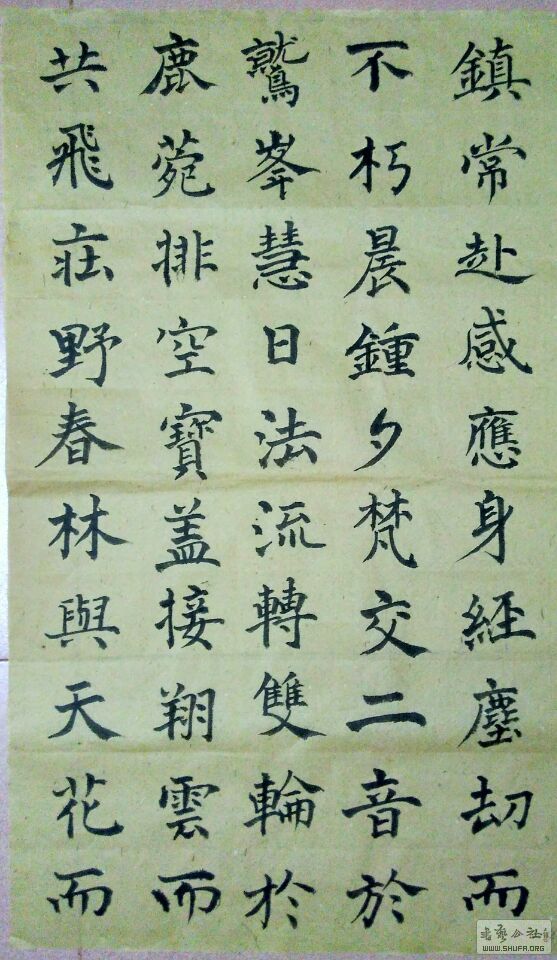 鎮常赴感應身經塵劫而
不朽晨鍾夕梵交二音於
鷲峯慧日法流轉雙輪於
鹿菀排空寶盖接翔雲而
共飛莊野春林與天花而
WWW.SHUFA.ORG